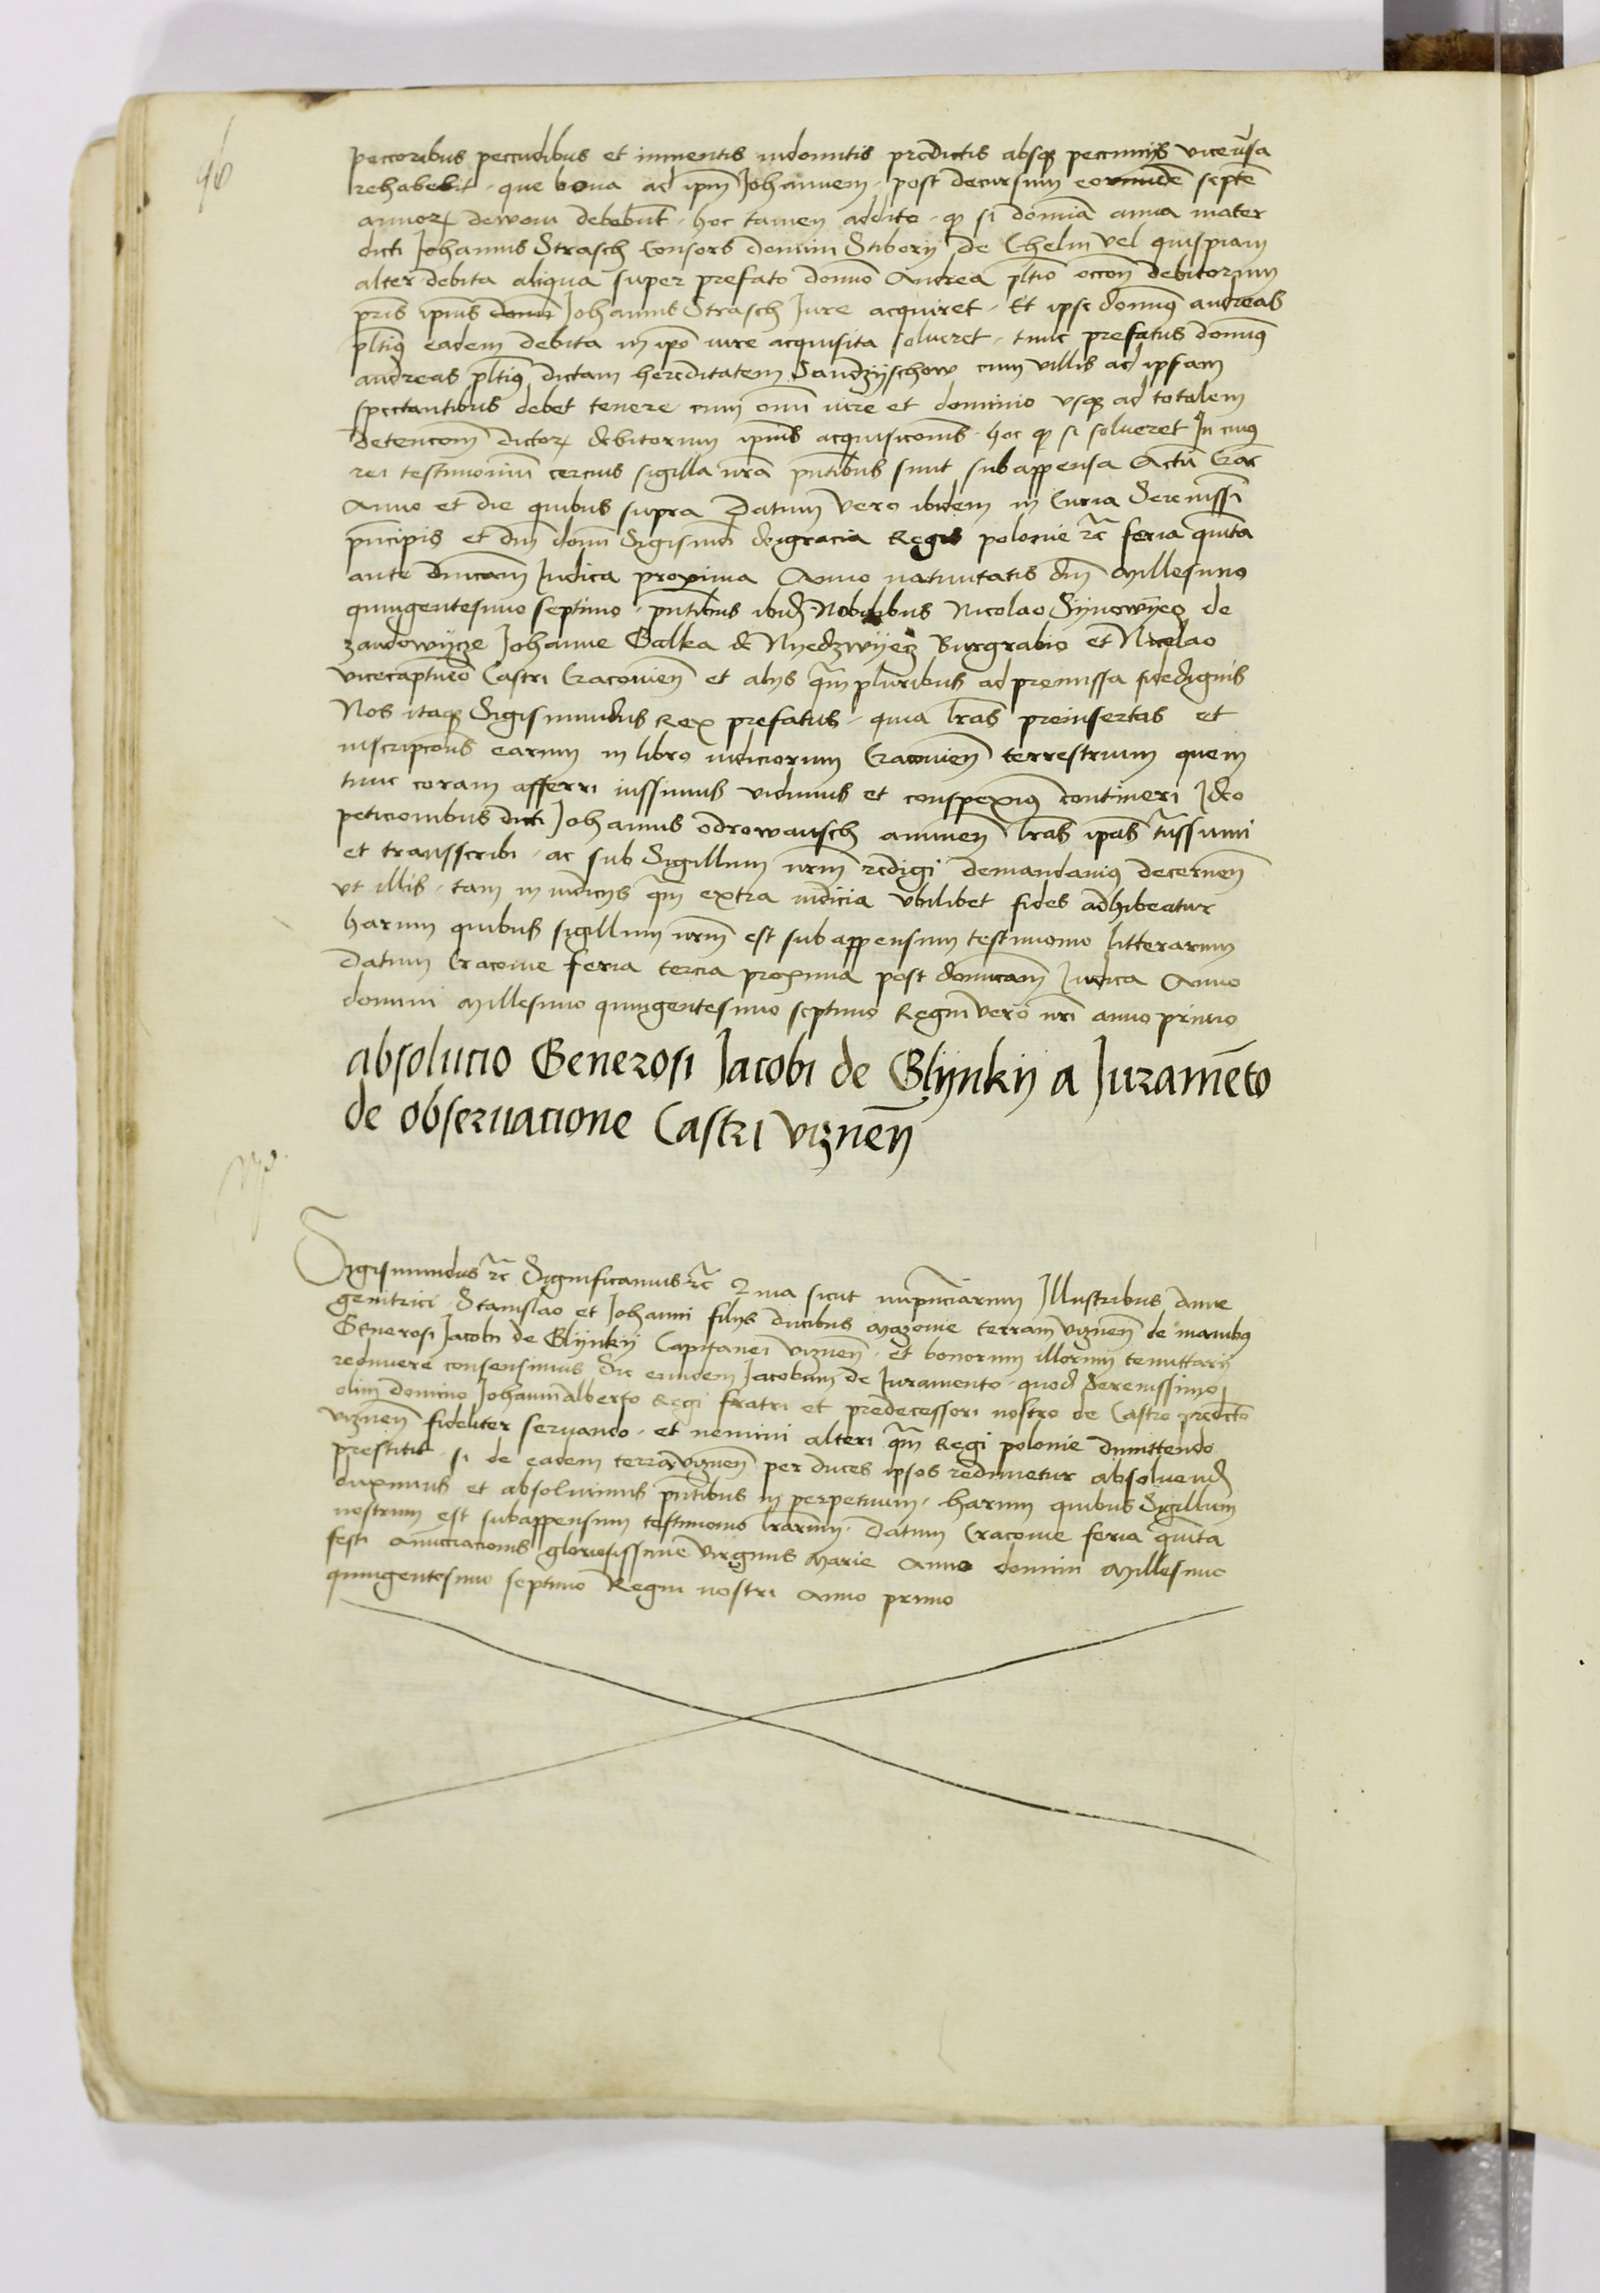 96
peccoribus peccudibus et iumentis indomitis predictis absq peccunijs viceversa
rehabebit. que bona ad ipm Johannem. post decursum eorumdē septē
annoꝝ devoui debebūt. hoc tamen addito. q si domiā anna mater
dicti Johannis Strasch Consors domini Stiborij de Chelm vel quispiam
alter debita aliqua super prefato domīo Andrea pltīo occōn debitorum
pris ipius Johannis Strasch Jure acquiret. Et ipse domius andreas
pltīus eadem debita in ipō iure acquisita solueret. tunc prefatus domius
andreas pltīus dictam hereditatem Sandzijschow cum villis ad ipsam
spectantibus debet tenere cum omi iure et dominio vsq ad totalem
detencōm dictoꝝ debitorum ipius acquisicionis. hoc q si solueret In cuius
rei testimoniū cercius sigilla nrā pntibus sunt subappensa Actū Crac
Anno et die quibus supra Datum vero ibidem in Curia Sereniss͞i
pncipis et dni domi Sigismū dei gracia Regis polonie ꝛc feria quīta
ante dnicam Judica proxima Anno natiuitatis dni Millesimo
quingentesimo septimo. pntibus ibid Nobilibus Nicolao Sijnowijecz de
zandowijcze Johanne Galka de Nijedzwijecz Burgrabio et Nicolao
vicecaptneo Castri Cracouien et alijs qm pluribus ad premissa fidedignis
Nos itaq Sigismundus Rex prefatus. quia lras preinsertas et
inscripcōnes earum in libro iudiciorum Cracouien terrestrium quem
tunc coram afferri iussimus vidimus et conspeximus contineri Ideo
peticionibus dicti Johannis odrowansch annuen lras ipas trassumi
et transscribi. ac sub Sigillum nrm redigi demandauimus decernen
vt illis. tam in iudicijs qm extra iudicia vbilibet fides adhibeatur
harum quibus sigillum nrm est subappensum testimonio litterarum
Datum Cracouie feria tercia proxima post dominicam Judica Anno
domini Millesimo quingentesimo septimo Regni vero nri anno primo
absolucio Generosi Jacobi de Glijnkij a Juramēto
de obseruacione Castri viznen̄
Sigismundus ꝛc Significamus ꝛc Quia sicut Illustribus Anne
genitrici. Stanislao et Johanni filijs ducibus Mazouie terram viznen̄ de manibus
Generosi Jacobi de Glijnkij Capitanei viznen̄. et bonorum illorum tenuttarij
redimere consensimus Sic eundem Jacobum de Juramento. quod Serenissimo
olim domino Johannialberto Regi fratri et predecessori nostro de Castro predicto
viznen̄ fideliter seruando. et nemini alteri qm Regi polonie dimittendo
prestitit. si de eadem terra viznen̄ per duces ipsos redimetur absoluend
duximus et absoluimus pntibus in perpetuum. harum quibus Sigillum
nostrum est subappensum testimonio lrarum. Datum Cracouie feria quīta
festi Anunciacionis gloriosissime virginis Marie Anno domini Millesimo
quingentesimo septimo Regni nostri Anno primo